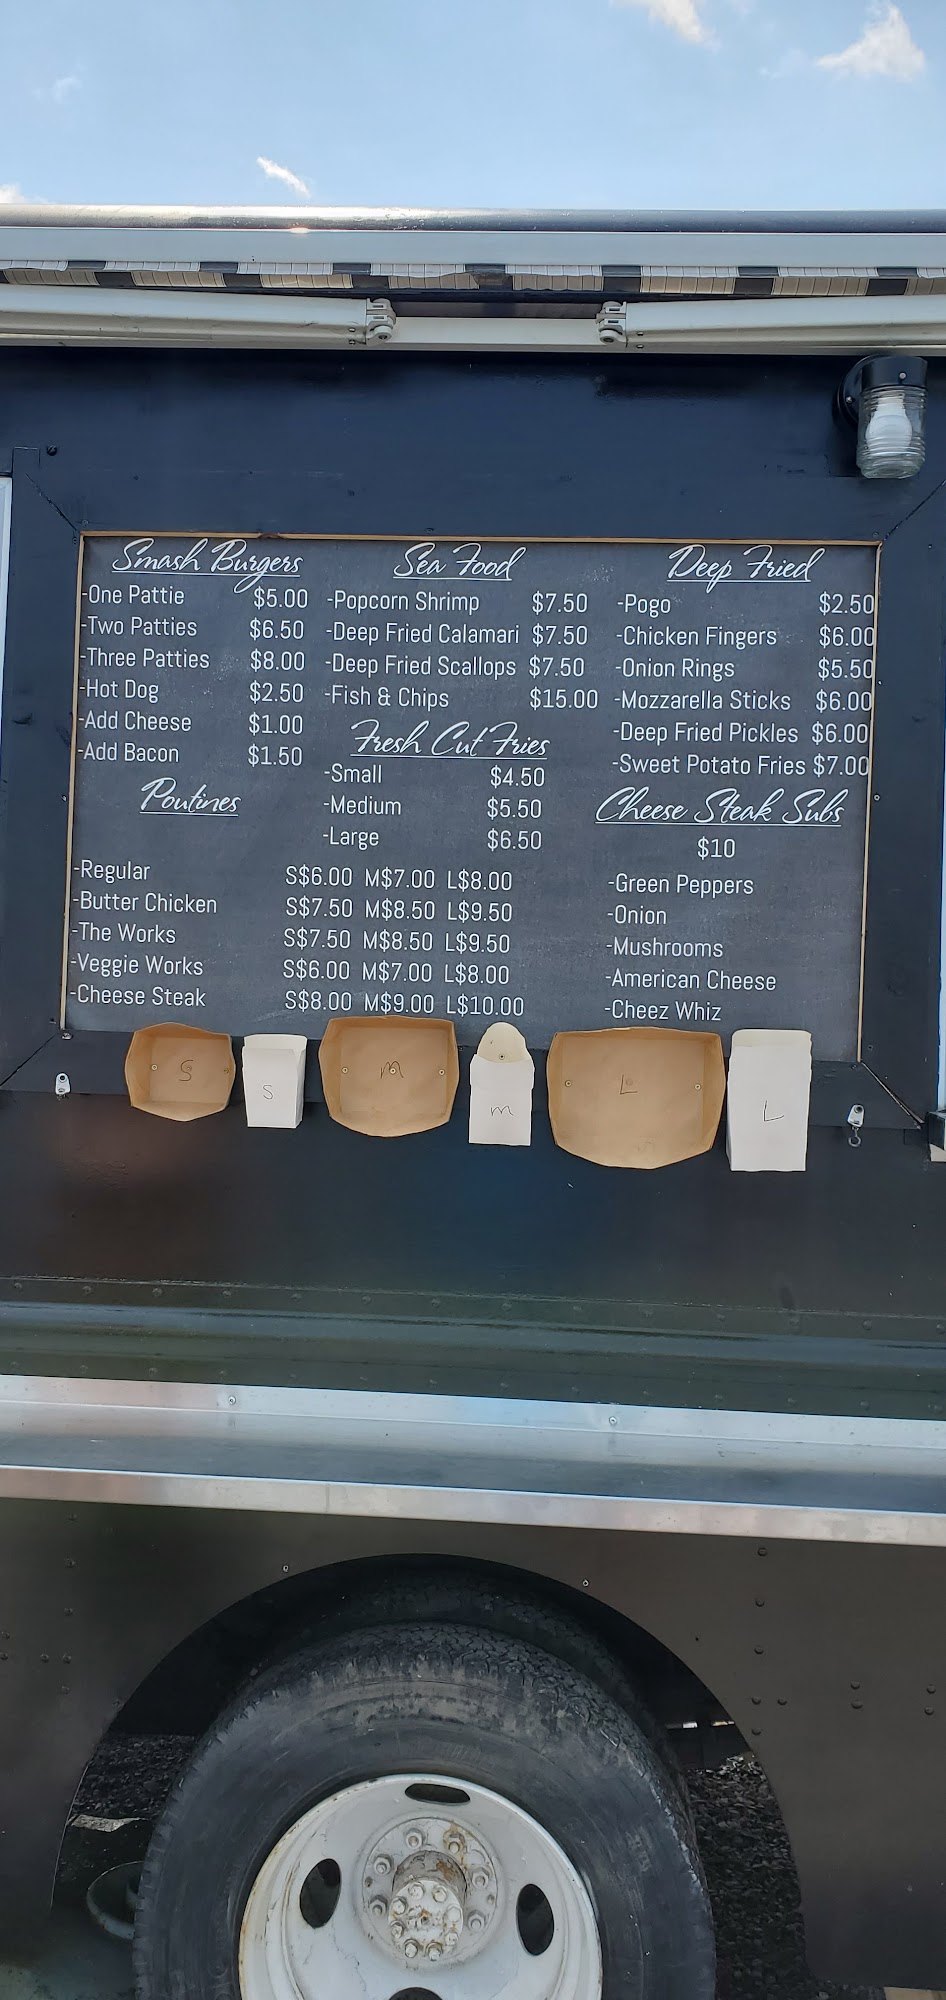 Smash Burgers
-One Pattie $5.00
-Two Patties $6.50
-Three Patties $8.00
-Hot Dog $2.50
-Add Cheese $1.00
-Add Bacon $1.50
Sea Food
-Popcorn Shrimp $7.50
-Deep Fried Calamari $7.50
-Deep Fried Scallops $7.50
-Fish & Chips $15.00
Fresh Cut Fries
-Small $4.50
-Medium $5.50
-Large $6.50
Deep Fried
-Pogo $2.50
-Chicken Fingers $6.00
-Onion Rings $5.50
-Mozzarella Sticks $6.00
-Deep Fried Pickles $6.00
-Sweet Potato Fries $7.00
Poutines
-Regular S$6.00 M$7.00 L$8.00
-Butter Chicken S$7.50 M$8.50 L$9.50
-The Works S$7.50 M$8.50 L$9.50
-Veggie Works S$6.00 M$7.00 L$8.00
-Cheese Steak S$8.00 M$9.00 L$10.00
Cheese Steak Subs
$10
-Green Peppers
-Onion
-Mushrooms
-American Cheese
-Cheez Whiz
S
S
M
M
L
L